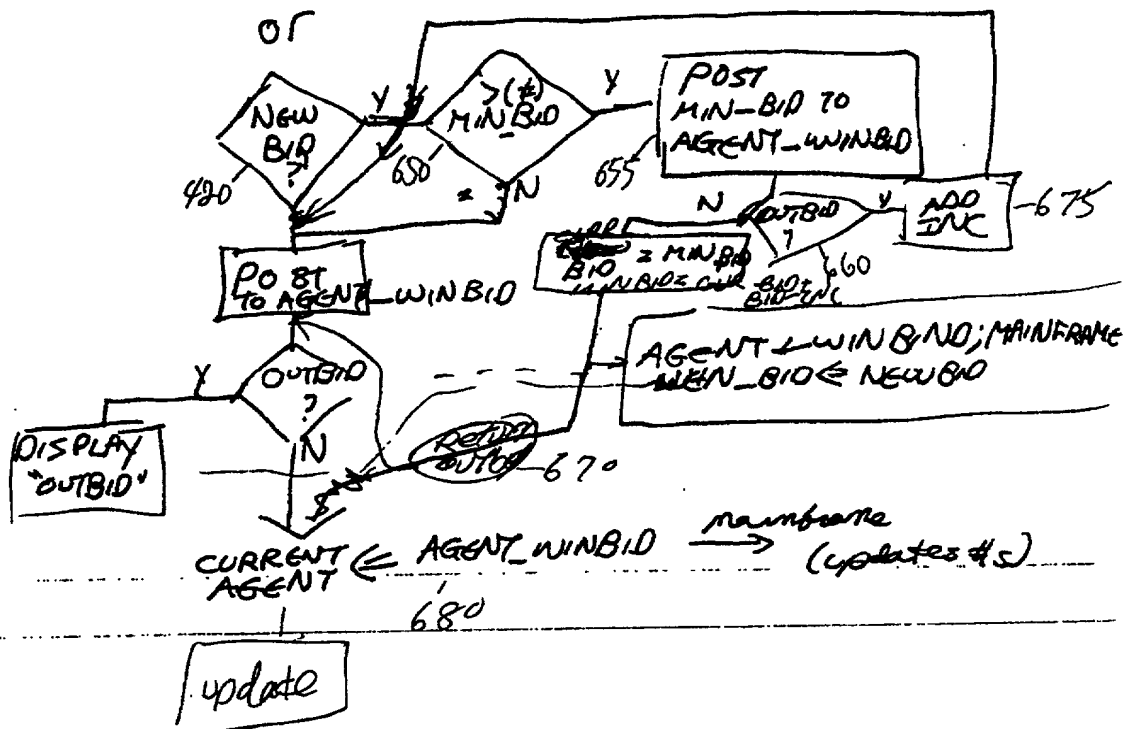 or
NEW
BID
?
420
Y
>(#)
MIN_BID
650
Y
N
POST
MIN_BID TO
AGENT_WINBID
655
N
OUTBID
?
Y
ADD
INC
675
660
BID=
BID-INC
BID = MINBID
WINBID=CUR
POST
TO AGENT_WINBID
AGENT_WINBIND; MAINFRAME
WIN_BID ⇐ NEWBID
OUTBID
?
Y
N
DISPLAY
"OUTBID"
Return
outbid
670
$
CURRENT ⇐ AGENT_WINBID → mainframe
AGENT (updates #s)
680
update